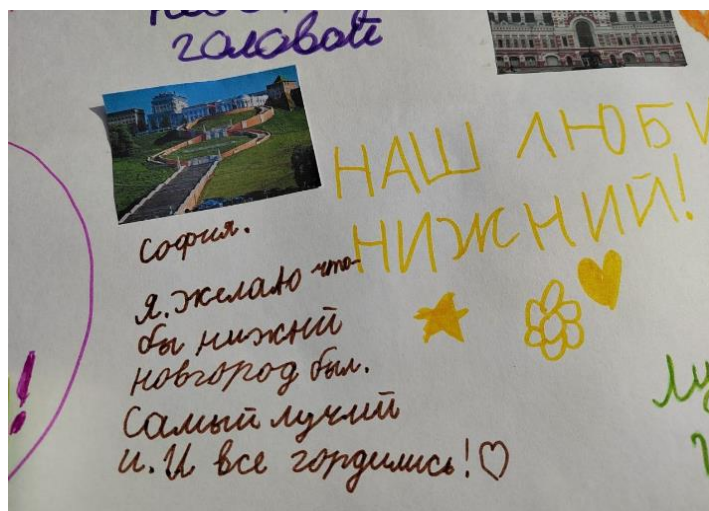 головой
НАШ ЛЮБИ
НИЖНИЙ!
София.
Я.желаю что-
бы нижнй
новгород был.
Самый лучий
и.И все гордились!♡
Лу